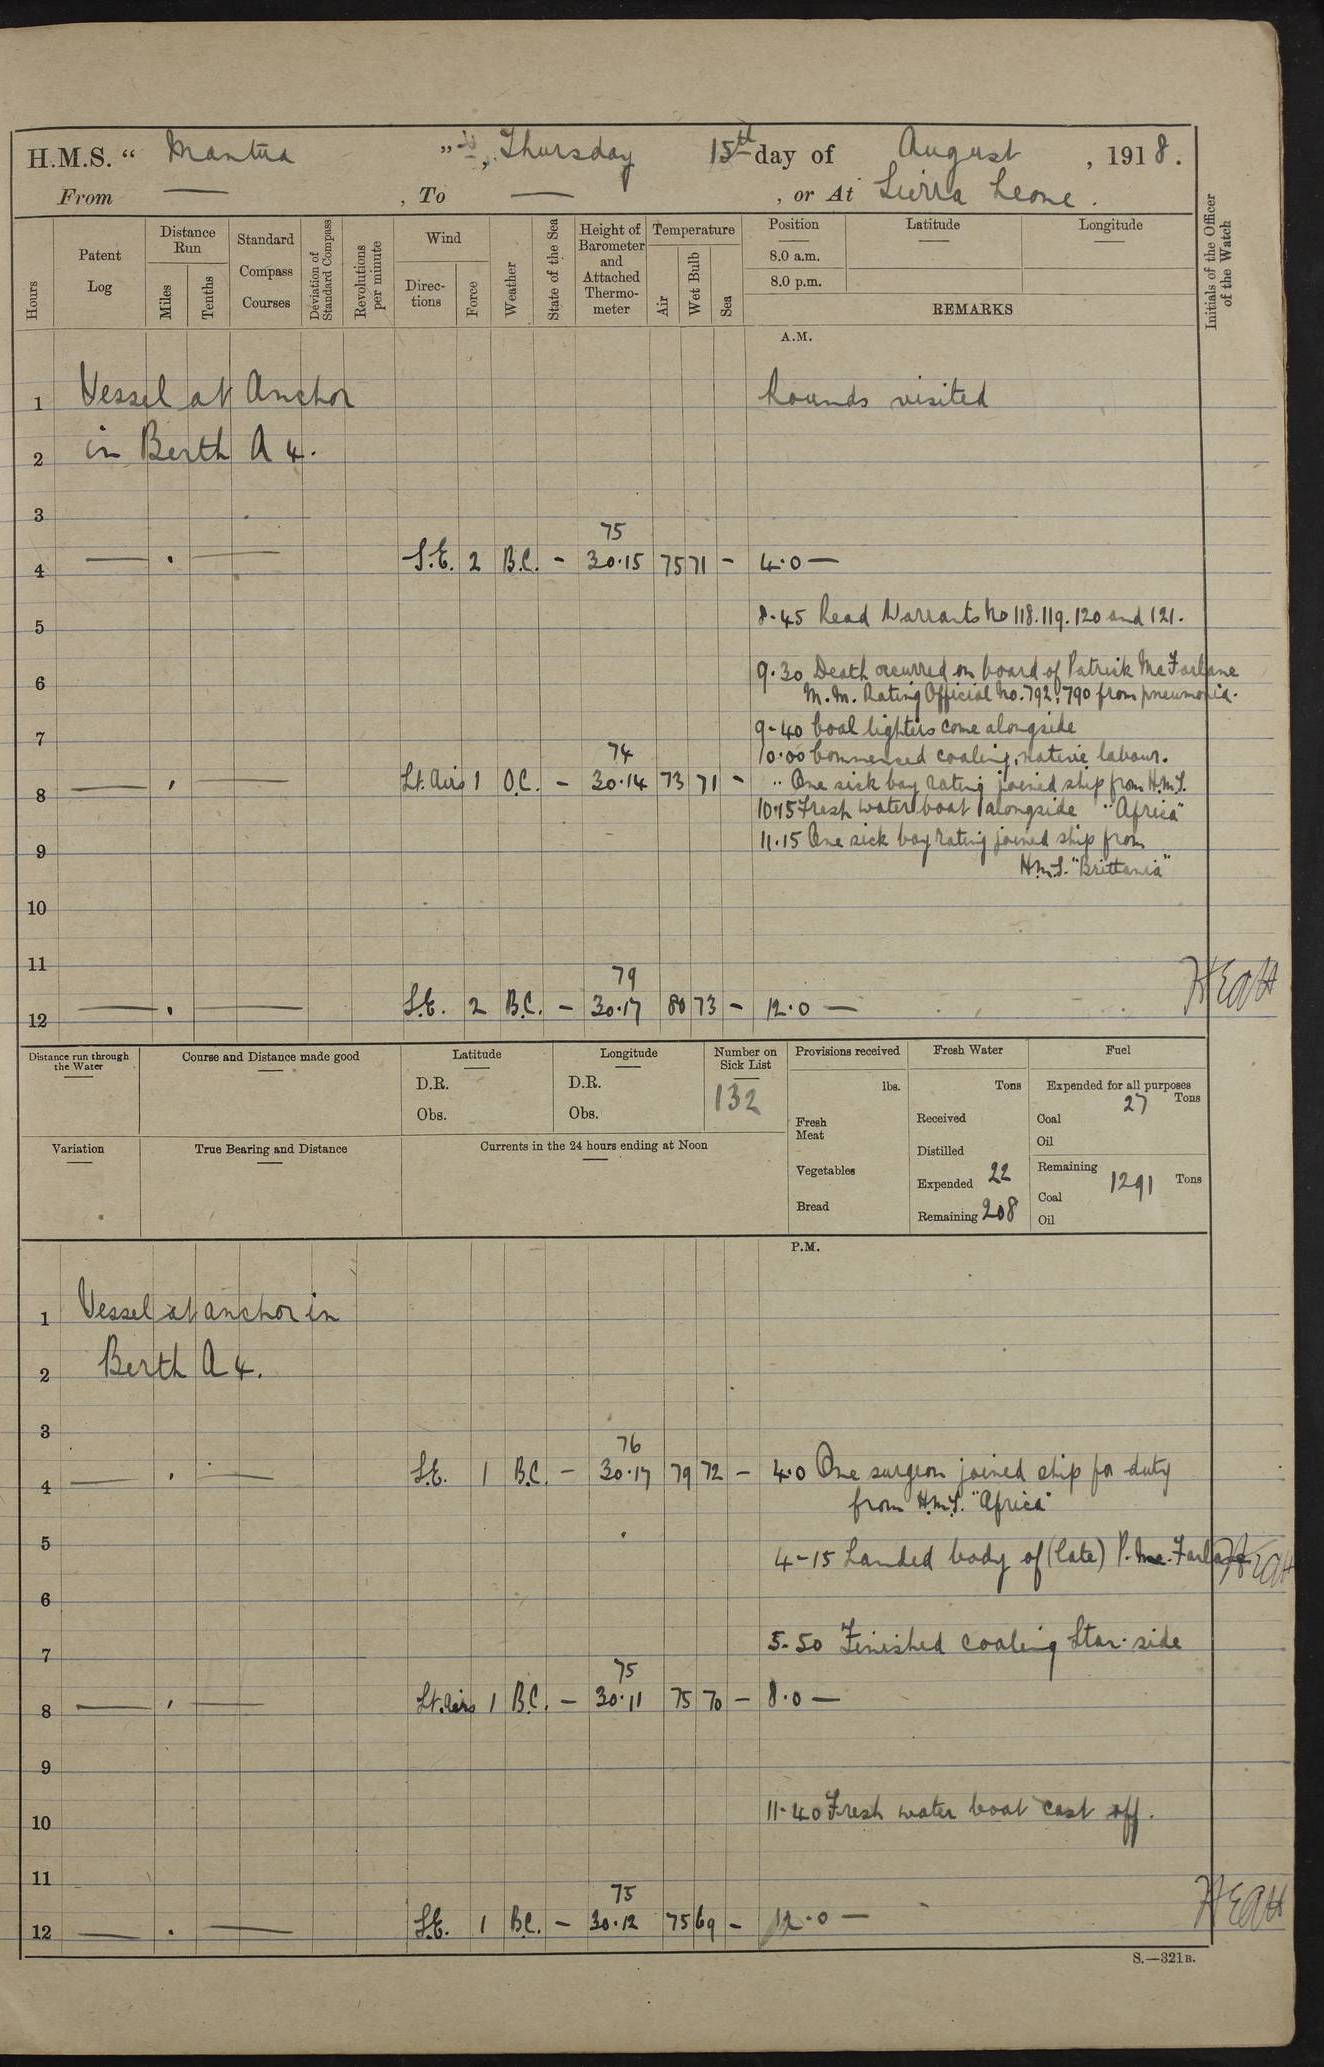 H.M.S. “ Mantua ”, Thursday 15th day of August, 1918.
From — , To — , or At Sierra Leone.
Hours
Patent Log
Distance Run
Miles
Tenths
Standard Compass Courses
Deviation of Standard Compass
Revolutions per minute
Wind
Directions
Force
Weather
State of the Sea
Height of Barometer and Attached Thermometer
Temperature
Air
Wet Bulb
Sea
Position
8.0 a.m.
8.0 p.m.
Latitude
Longitude
REMARKS
Initials of the Officer of the Watch
A.M.
1 Vessel at Anchor Rounds visited
2 in Berth A 4.
3
75
4 — . — S.E. 2 B.C. - 30.15 75 71 - 4.0 —
8-45 Read Warrants No 118.119.120 and 121.
5
9.30 Death occurred on board of Patrick McFarlane
6 M.M. Rating Official No. 792,790 from pneumonia.
9-40 Coal lighters come alongside
7
74 10.00 Commenced coaling, native labour.
8 — . — Lt. Airs 1 O.C. - 30.14 73 71 - " One sick bay rating joined ship from H.M.S.
10.15 Fresh water boat alongside "Africa"
11.15 One sick bay rating joined ship from
9
H.M.S. "Brittania"
10
11
79
12 — . — S.E. 2 B.C. - 30.17 80 73 - 12.0 —
Distance run through the Water
Course and Distance made good
Latitude
D.R.
Obs.
Longitude
D.R.
Obs.
Number on Sick List
132
Provisions received
lbs.
Fresh Meat
Vegetables
Bread
Fresh Water
Tons
Received
Distilled
Expended 22
Remaining 208
Fuel
Expended for all purposes
27 Tons
Coal
Oil
Remaining
1291 Tons
Coal
Oil
Variation
True Bearing and Distance
Currents in the 24 hours ending at Noon
P.M.
1 Vessel at anchor in
2 Berth A 4.
3
76
4 — . — S.E. 1 B.C. - 30.17 79 72 - 4.0 One surgeon joined ship for duty
from H.M.S. "Africa"
5
4-15 Landed body of (late) P. Mc.Farlane
6
5-50 Finished coaling Star. side
7
75
8 — . — Lt. Airs 1 B.C. - 30.11 75 70 - 8.0 —
9
11-40 Fresh water boat cast off.
10
11
75
12 — . — S.E. 1 B.C. - 30.12 75 69 - 12.0 —
S.—321B.